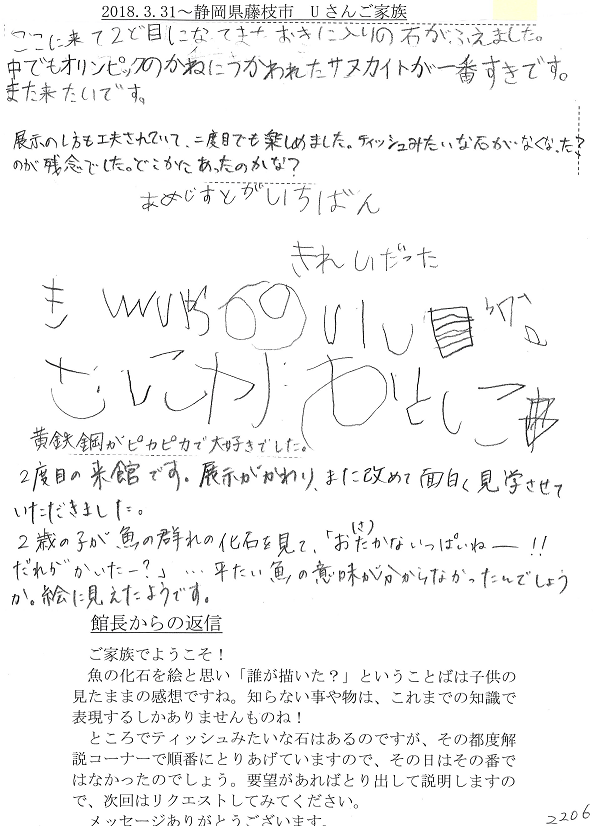 2018.3.31～静岡県藤枝市　Uさんご家族
ここに来て2ど目になてました おきに入りの石がふえました。
中でもオリンピックのかねにうかわれたサヌカイトが一番すきです。
また来たいです。
展示のし方も工夫されていて、二度目でも楽しめました。ティッシュみたいな石がなくなった?
のが残念でした。どこかにあったのかな？
あめじすとがいちばん
きれいだった
黄鉄鋼がピカピカで大好きでした。
2度目の来館です。展示がかわり、また改めて面白く見学させて
いただきました。
2歳の子が魚の群れの化石を見て、「おたかな(さ)いっぱいねー!!
だれがかいたー?」…平たい魚の意味が分からなかったんでしょう
か。絵に見えたようです。
館長からの返信
ご家族でようこそ！
魚の化石を絵と思い「誰が描いた？」ということばは子供の
見たままの感想ですね。知らない事や物は、これまでの知識で
表現するしかありませんものね！
ところでティッシュみたいな石はあるのですが、その都度解
説コーナーで順番にとりあげていますので、その日はその番で
はなかったのでしょう。要望があればとり出して説明しますの
で、次回はリクエストしてみてください。
メッセージありがとうございます。
2206